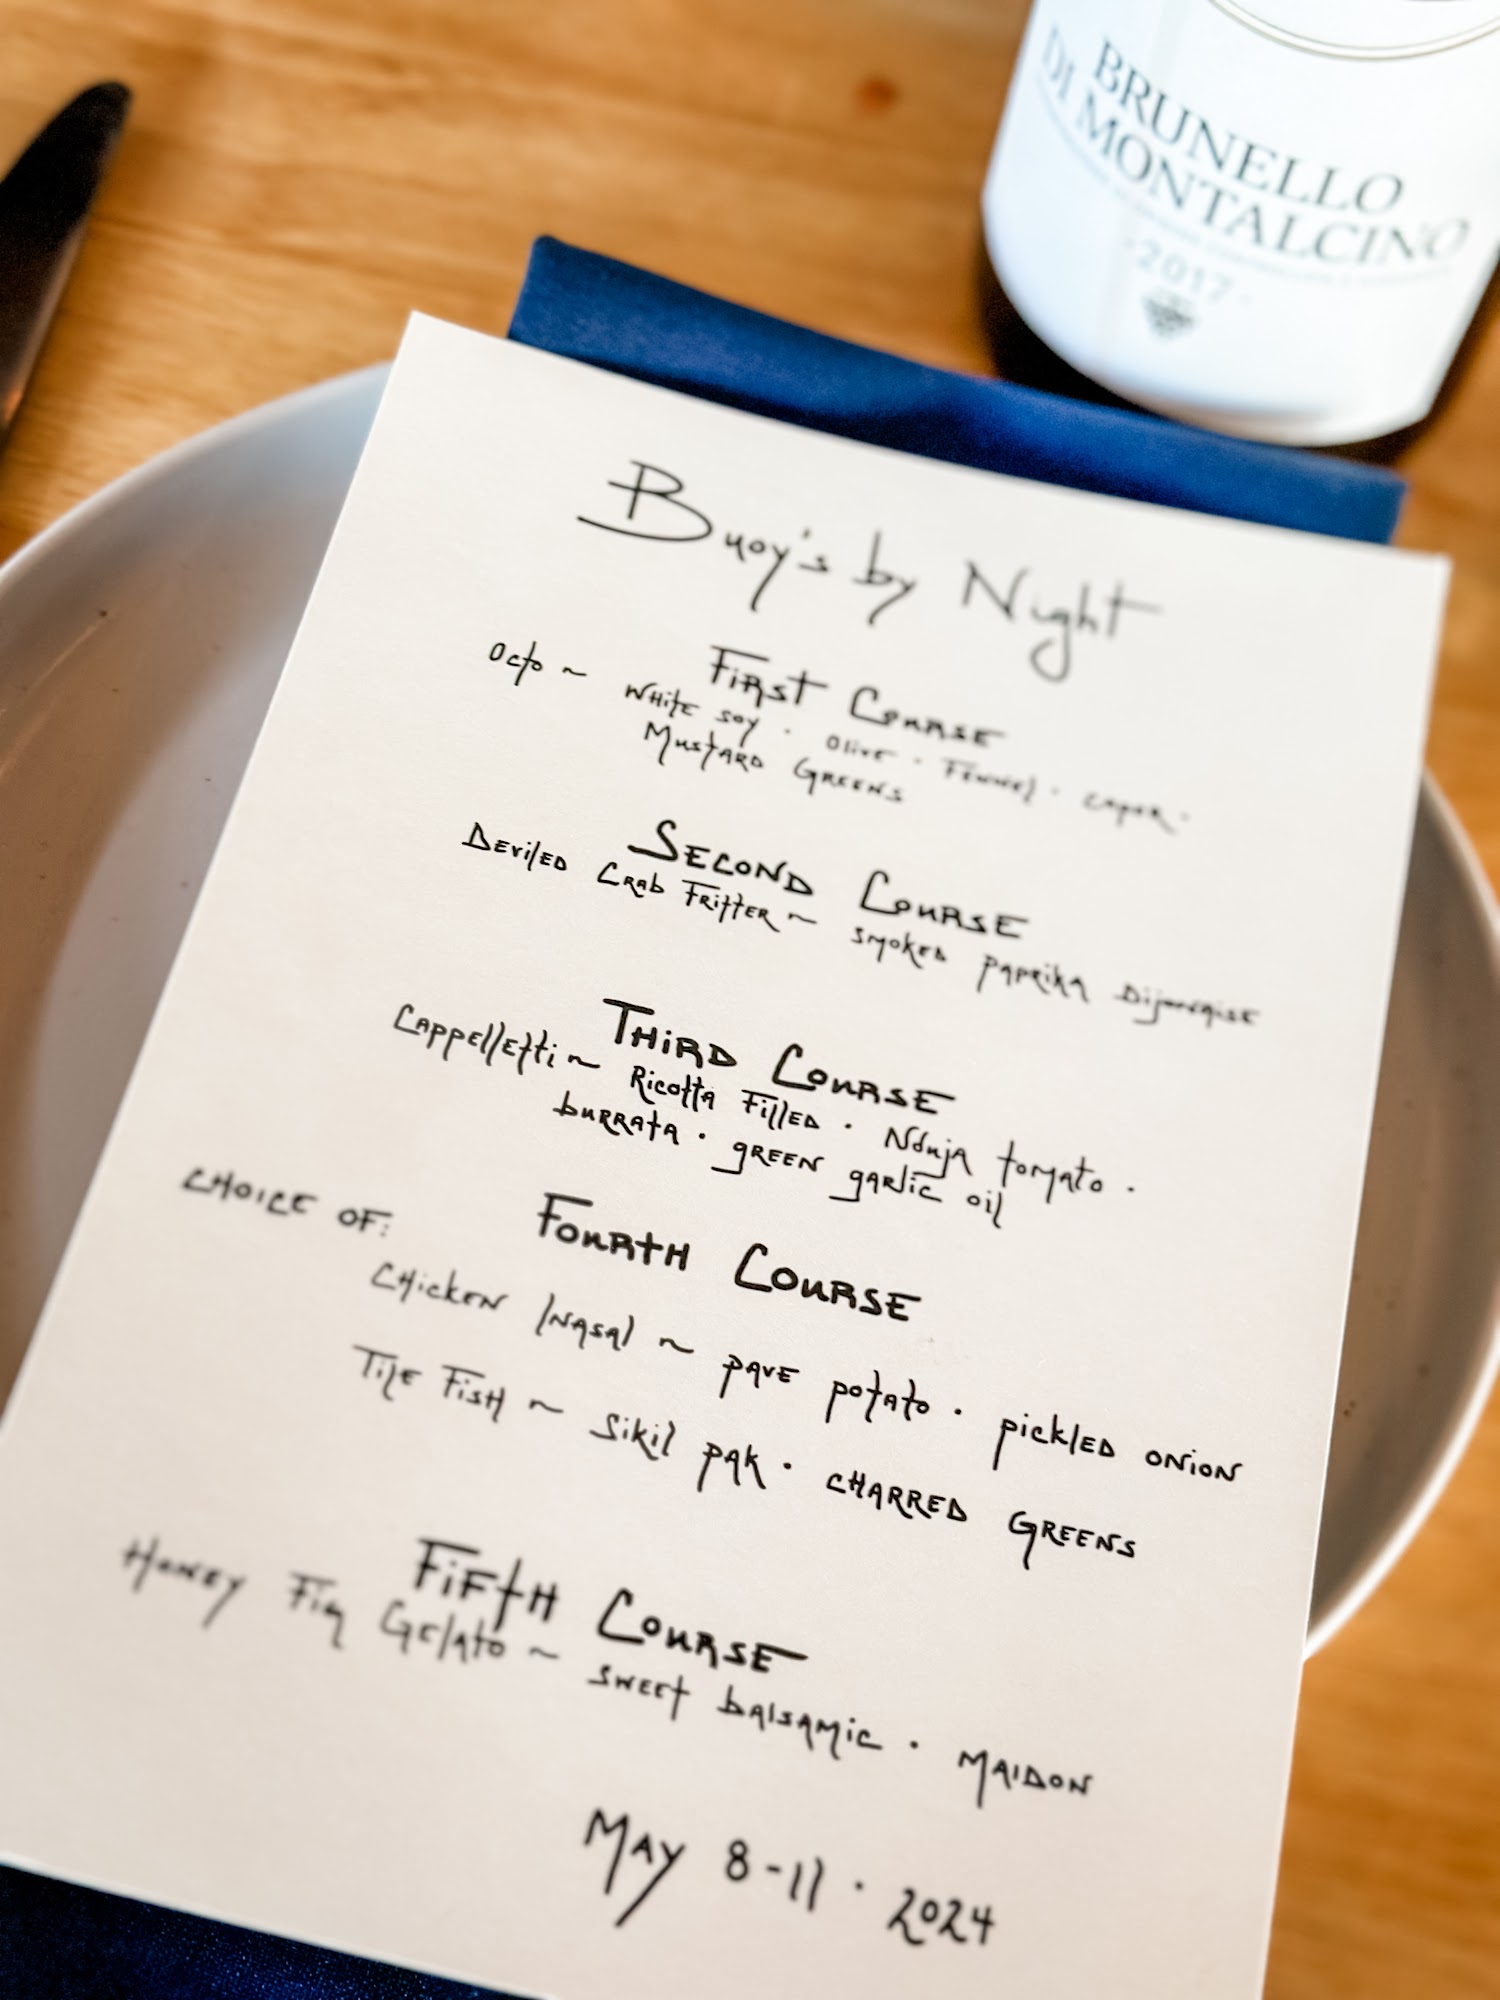 BRUNELLO
DI MONTALCINO
· 2017 ·
Buoy's by Night
First Course
Octo ~ White soy · Olive · Fennel · caper ·
Mustard Greens
Second Course
Deviled Crab Fritter ~ smoked paprika Dijonnaise
Third Course
Cappelletti ~ Ricotta Filled · Nduja tomato ·
burrata · green garlic oil
Fourth Course
Choice of:
Chicken Inasal ~ pave potato · pickled onion
Tile Fish ~ Sikil pak · charred Greens
Fifth Course
Honey Fig Gelato ~ sweet balsamic · Maidon
May 8-11 · 2024